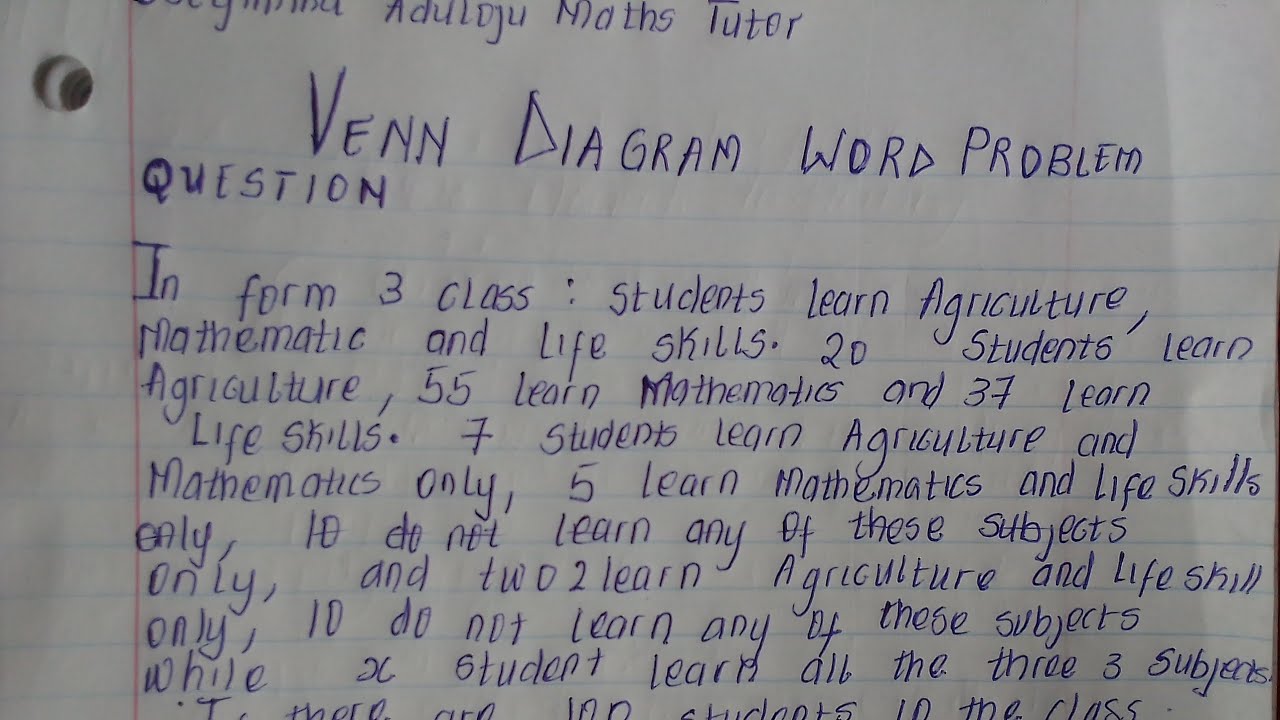 Aduloju Maths Tutor
VENN DIAGRAM WORD PROBLEM
QUESTION
In form 3 class : students learn Agriculture,
Mathematic and Life skills. 20 Students learn
Agriculture, 55 learn Mathematics and 37 learn
Life skills. 7 students learn Agriculture and
Mathematics only, 5 learn Mathematics and Life skills
only, 10 do not learn any of these subjects
only, and two 2 learn Agriculture and Life skill
only, 10 do not learn any of these subjects
while x student learn all the three 3 subjects.
there are 100 students in the class.